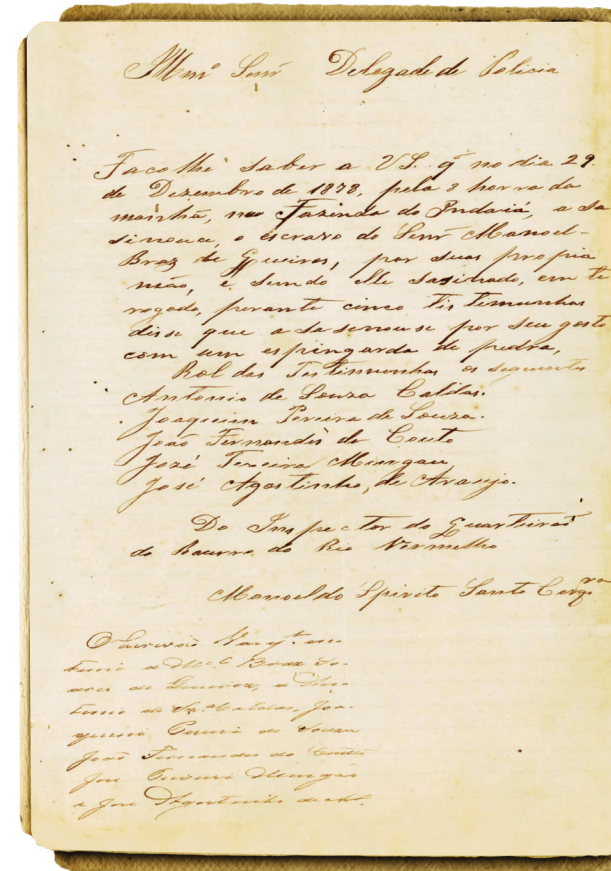 Illmº Senr Delegade de Policia
Faco lhe saber a V.S. q no dia 29
de Dezembro de 1878, pela 8 horra da
manhã, na Fazenda do Indaiá, a sa
sinouce, o escravo do Senr Manoel
Braz de Queiros, por suas propia
mão, e sendo elle sasinado, em te
rogado, perante cinco tistemunhas
dise que a sasinouse por seu gosto
com um espingarda de pedra,
Rol das Testimunhas os seguintes
Antonio de Souza Caldas.
Joaquim Pereira de Souza.
João Fernandes do Couto
Jozé Teixeira Mingau
José Agostinho, de Araujo.
Do Inspector do Quarteirão
do Baurro do Rio Vermelho
Manoel do Spirito Santo Cerqrª
O Escrivão
a Mel Braz So-
ares de Queiroz, a An-
tonio de Sza Caldas, Joa-
quim Pereira de Souza
João Fernandes do Couto
José Teixeira Mingáo
e José Agostinho